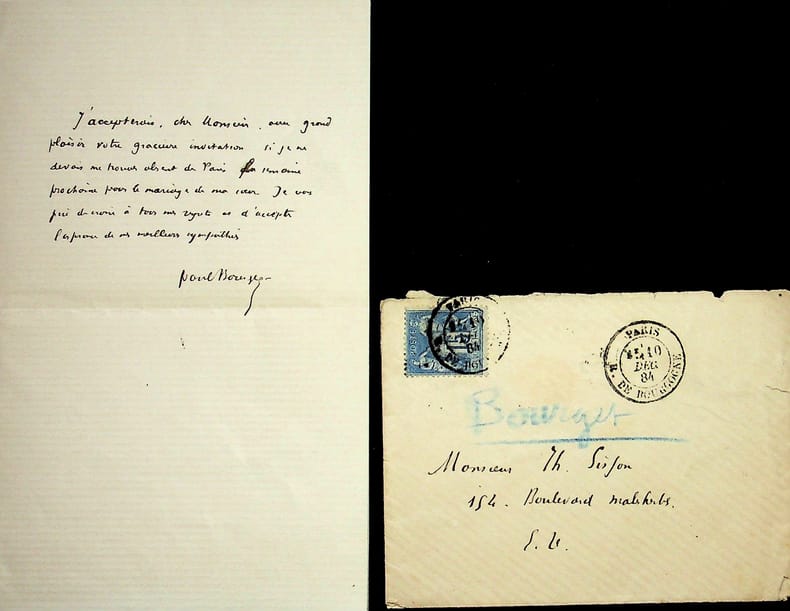 J'accepterais, cher Monsieur, avec grand
plaisir votre gracieuse invitation si je ne
devais me trouver absent de Paris la semaine
prochaine pour le mariage de ma sœur. Je vous
prie de croire à tous mes regrets et d'accepter
l'expression de mes meilleures sympathies
Paul Bourget
PARIS
10
DEC
84
R. DE BOURGOGNE
PARIS
10
84
POSTE
Bourget
Monsieur Th. Sisson
154. Boulevard Malesherbes.
E. V.